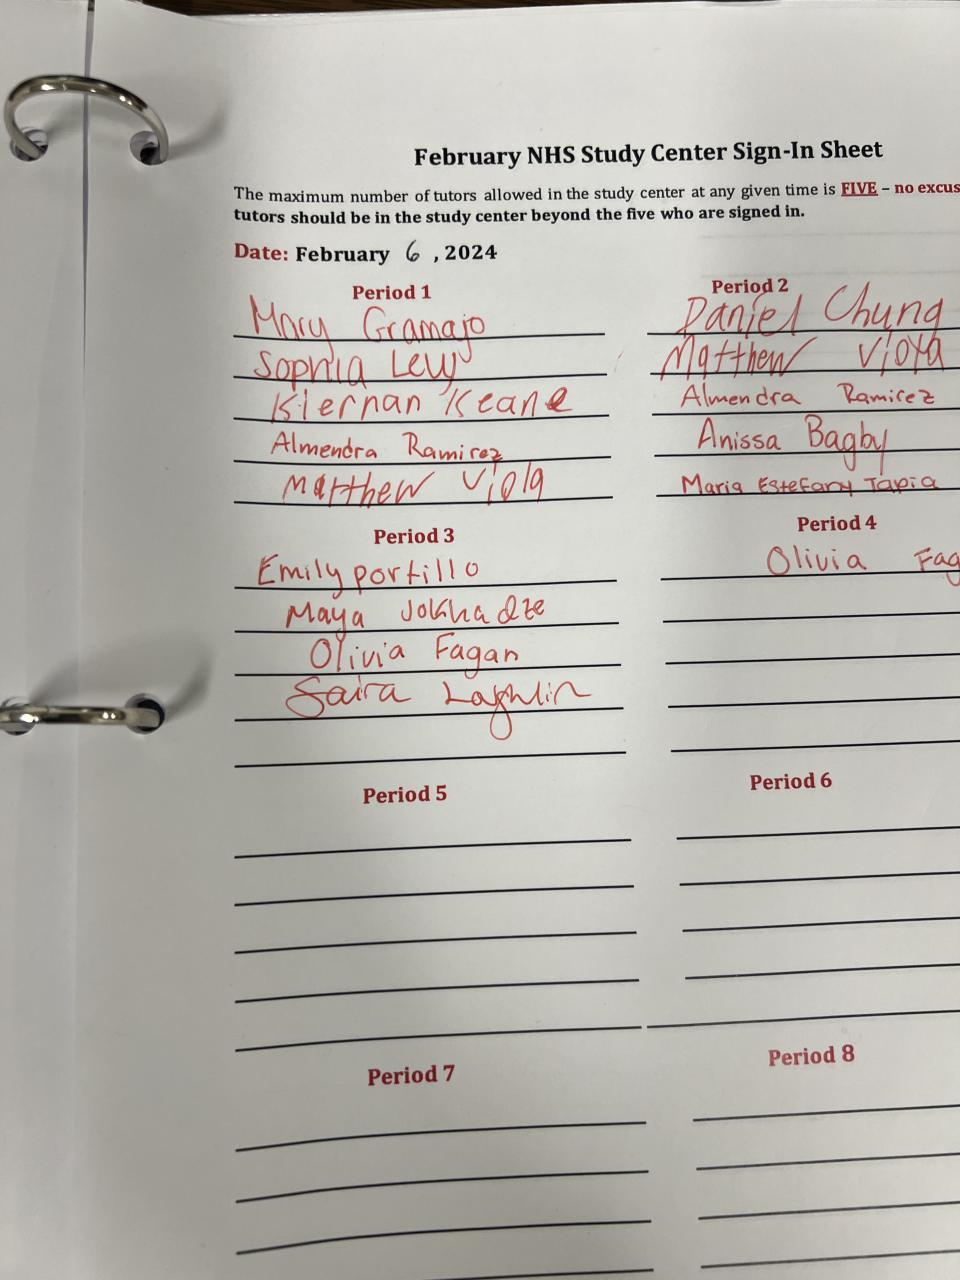 February NHS Study Center Sign-In Sheet
The maximum number of tutors allowed in the study center at any given time is FIVE – no excus
tutors should be in the study center beyond the five who are signed in.
Date: February 6 , 2024
Period 1
Mary Gramajo
Sophia Levy
Kiernan Keane
Almendra Ramirez
Matthew Viola
Period 2
Daniel Chung
Matthew Viola
Almendra Ramirez
Anissa Bagby
Maria Estefany Tapia
Period 3
Emily portillo
Maya Jokhadze
Olivia Fagan
Saira Laghlin
Period 4
Olivia Fag
Period 5
Period 6
Period 7
Period 8